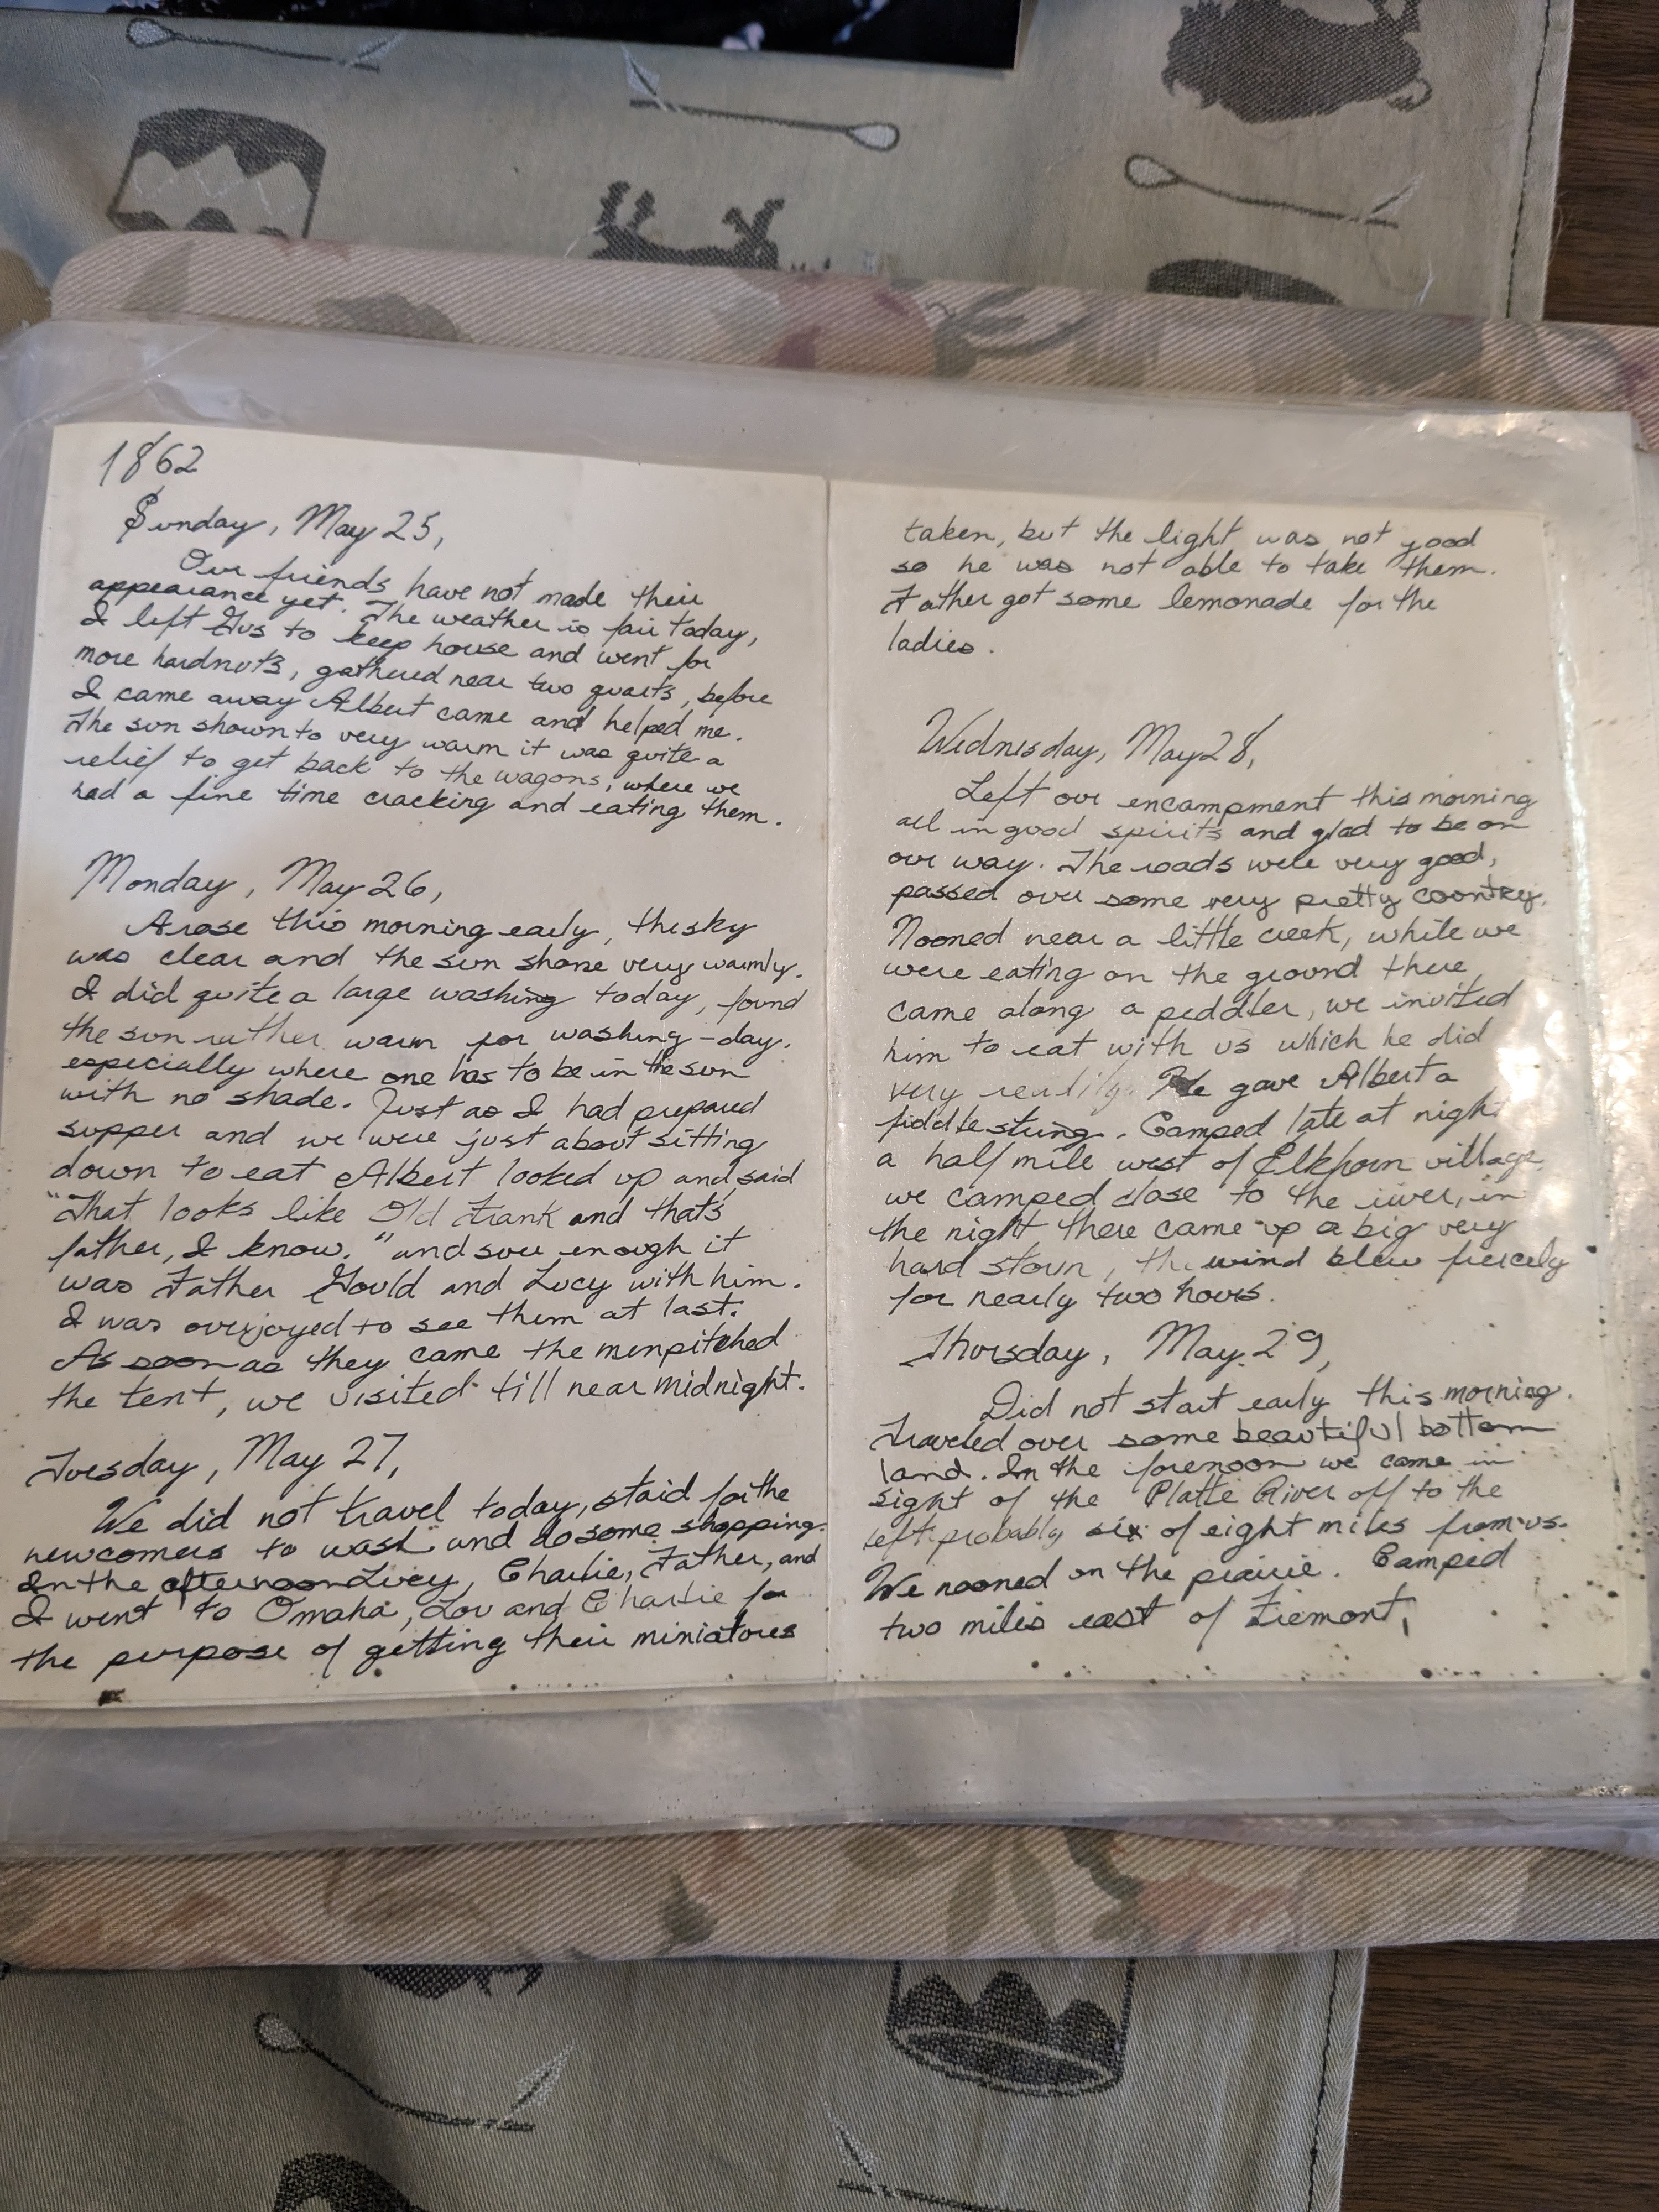 1862
Sunday, May 25,
Our friends have not made their
appearance yet. The weather is fair today,
I left Gus to keep house and went for
more hardnuts, gathered near two quarts, before
I came away Albert came and helped me.
The sun shown to very warm it was quite a
relief to get back to the wagons, where we
had a fine time cracking and eating them.
Monday, May 26,
Arose this morning early, the sky
was clear and the sun shone very warmly.
I did quite a large washing today, found
the sun rather warm for washing-day.
especially where one has to be in the sun
with no shade. Just as I had prepared
supper and we were just about sitting
down to eat Albert looked up and said
"That looks like Old Frank and that's
father, I know." and sure enough it
was Father Gould and Lucy with him.
I was overjoyed to see them at last.
As soon as they came the men pitched
the tent, we visited till near midnight.
Tuesday, May 27,
We did not travel today, staid for the
newcomers to wash and do some shopping.
In the afternoon Lucy, Charlie, Father, and
I went to Omaha, Lou and Charlie for
the purpose of getting their miniatures
taken, but the light was not good
so he was not able to take them.
Father got some lemonade for the
ladies.
Wednesday, May 28,
Left our encampment this morning
all in good spirits and glad to be on
our way. The roads were very good,
passed over some very pretty country.
Nooned near a little creek, while we
were eating on the ground there
came along a peddler, we invited
him to eat with us which he did
very readily. He gave Albert a
fiddle string. Camped late at night
a half mile west of Elkhorn village
we camped close to the river, in
the night there came up a big very
hard storm, the wind blew fiercely
for nearly two hours.
Thursday, May 29,
Did not start early this morning.
Traveled over some beautiful bottom
land. In the forenoon we came in
sight of the Platte River off to the
left probably six of eight miles from us.
We nooned on the prairie. Camped
two miles east of Fremont,